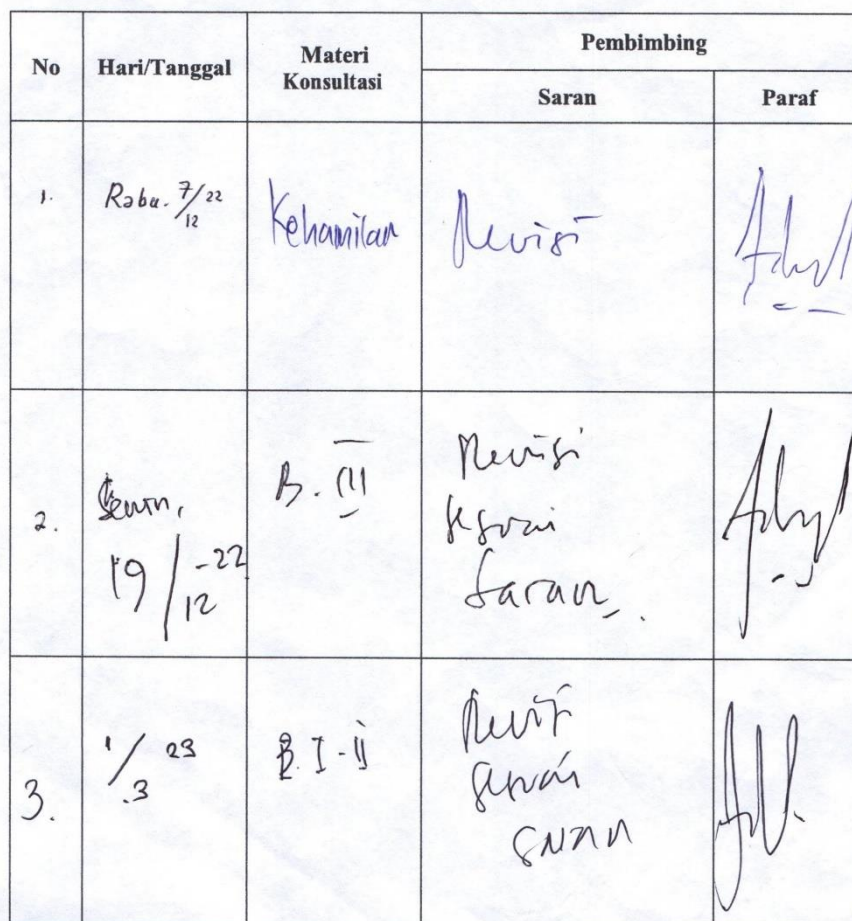 No Hari/Tanggal Materi Konsultasi Pembimbing
Saran Paraf
1. Rabu. 7/12 22 Kehamilan Revisi
2. Senin, 19/12 -22 B. III Revisi sesuai saran.
3. 1/3 23 B. I - II Revisi sesuai saran